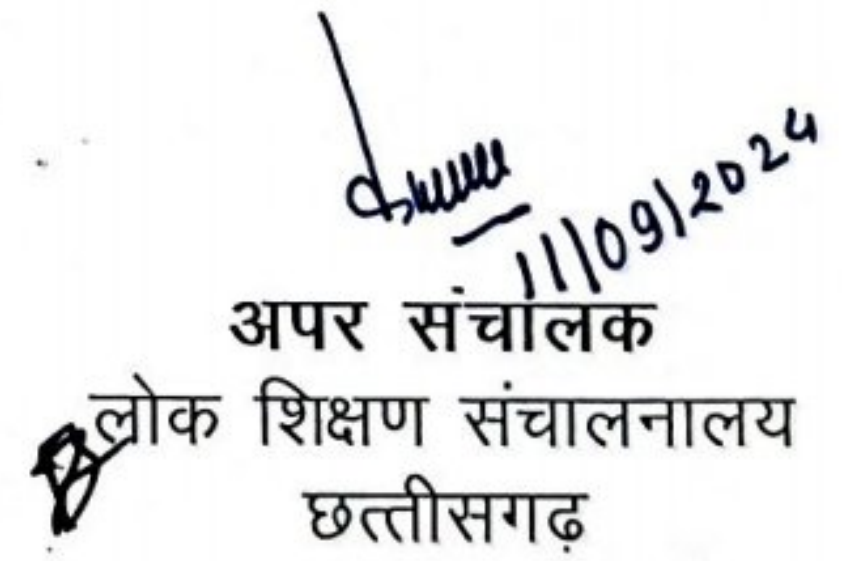 11/09/2024
अपर संचालक
लोक शिक्षण संचालनालय
छत्तीसगढ़